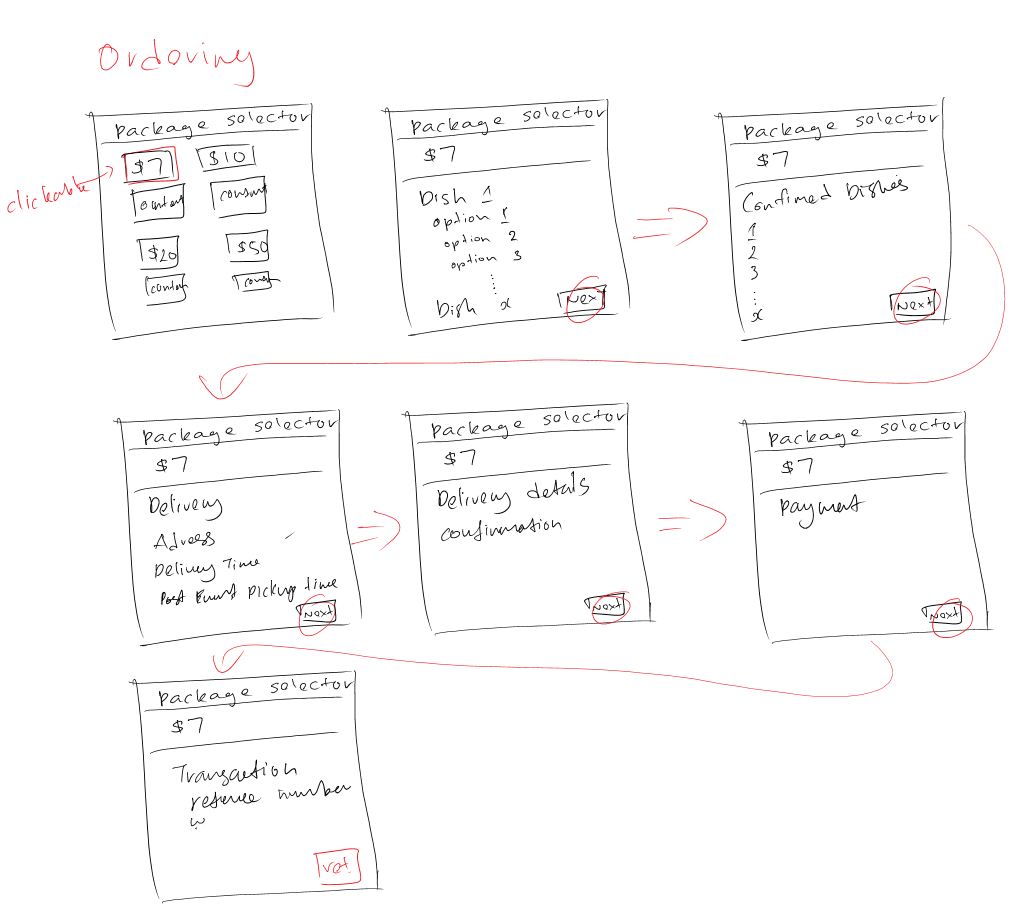 Ordoring
package selector
$7 $10
clickable
content consent
$20 $50
content
package selector
$7
Dish 1
option 1
option 2
option 3
Dish x
Next
package selector
$7
Confirmed Dishes
1
2
3
...
x
Next
package selector
$7
Delivery
Adress
Delivery Time
Post Event pickup time
Next
package selector
$7
Delivery details
confirmation
Next
package selector
$7
payment
Next
package selector
$7
Transaction
number